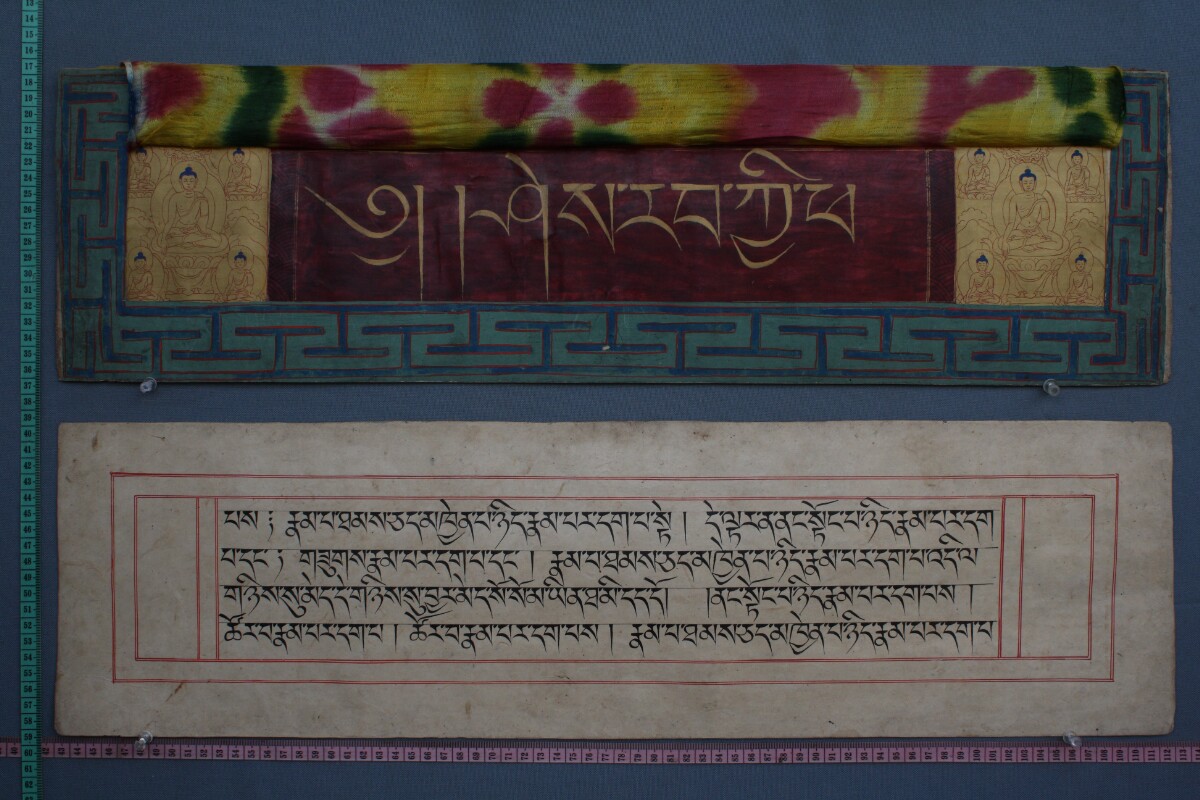 ༄། །ཤེས་རབ་ཀྱི་ཕ
པས ; རྣམ་པ་ཐམས་ཅད་མཁྱེན་པ་ཉིད་རྣམ་པར་དག་པ་སྟེ། དེ་ལྟར་ན་ནང་སྟོང་པ་ཉིད་རྣམ་པར་དག
པ་དང་; གཟུགས་རྣམ་པར་དག་པ་དང་། རྣམ་པ་ཐམས་ཅད་མཁྱེན་པ་ཉིད་རྣམ་པར་དག་པ་འདི་ལ
གཉིས་སུ་མེད་དེ་གཉིས་སུ་བྱར་མེད་སོ་སོ་མ་ཡིན་ཐ་མི་དད་དོ། །ནང་སྟོང་པ་ཉིད་རྣམ་པར་དག་པས །
ཚོར་བ་རྣམ་པར་དག་པ། ཚོར་བ་རྣམ་པར་དག་པས། རྣམ་པ་ཐམས་ཅད་མཁྱེན་པ་ཉིད་རྣམ་པར་དག་པ